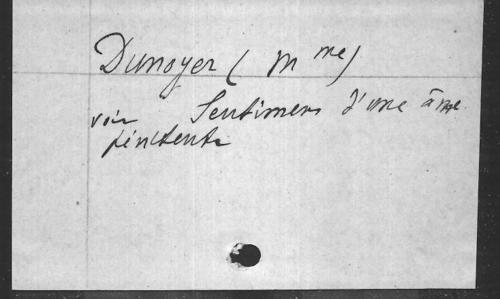 Dunoyer (Mme)
voir Sentimens d'une âme
pénitente